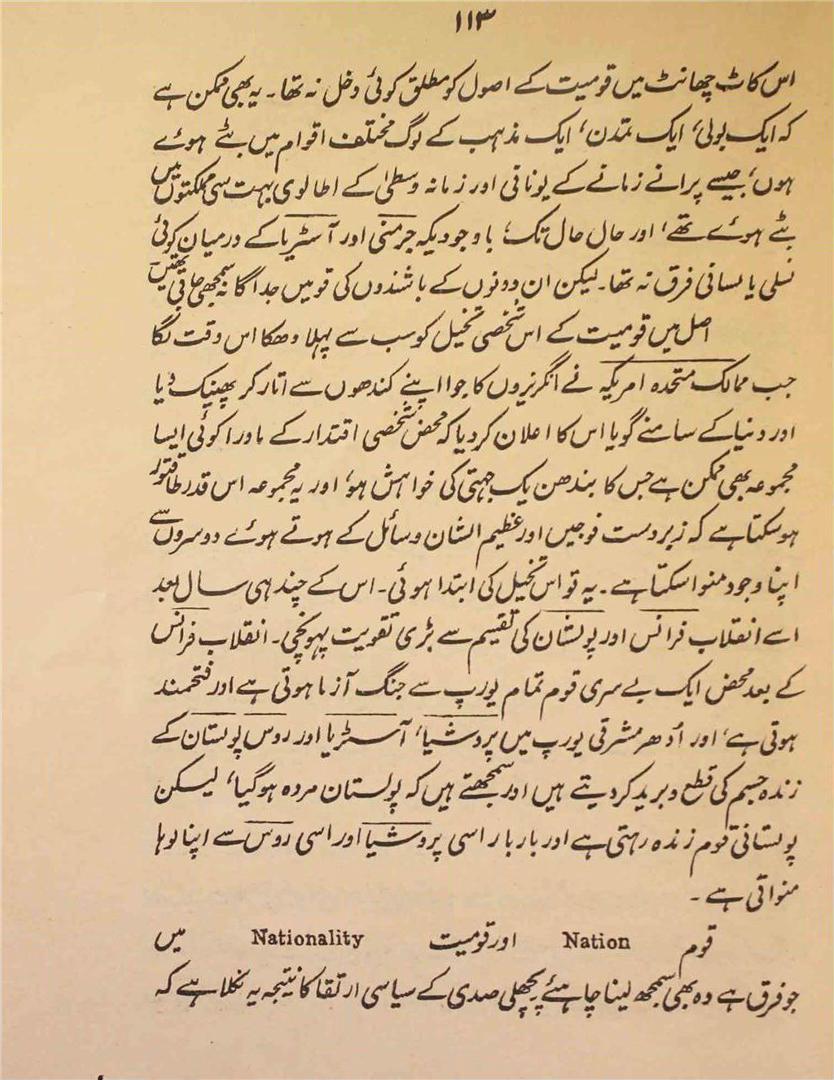 ۱۱۳
اس کاٹ چھانٹ میں قومیت کے اصول کو مطلق کوئی دخل نہ تھا۔ یہ بھی ممکن ہے
کہ ایک بولی، ایک تمدن، ایک مذہب کے لوگ مختلف اقوام میں بٹے ہوے
ہوں، جیسے پرانے زمانے کے یونانی اور زمانہ وسطیٰ کے اطالوی بہت سی مملکتوں میں
بٹے ہوے تھے، اور حال حال تک، باوجودیکہ جرمنی اور آسٹریا کے درمیان کوئی
نسلی یا لسانی فرق نہ تھا۔ لیکن ان دونوں کے باشندوں کی قومیں جداگانہ سمجھی جاتی تھیں
اصل میں قومیت کے اس شخصی تخیل کو سب سے پہلا دھکا اس وقت لگا
جب ممالک متحدہ امریکہ نے انگریزوں کا جوا اپنے کندھوں سے اتار کر پھینک دیا
اور دنیا کے سامنے گویا اس کا اعلان کر دیا کہ محض شخصی اقتدار کے ماورا کوئی ایسا
مجموعہ بھی ممکن ہے جس کا بندھن یک جہتی کی خواہش ہو، اور یہ مجموعہ اس قدر طاقتور
ہو سکتا ہے کہ زبردست فوجیں اور عظیم الشان وسائل کے ہوتے ہوے دوسروں سے
اپنا وجود منوا سکتا ہے۔ یہ تو اس تخیل کی ابتدا ہوئی۔ اس کے چند ہی سال بعد
اسے انقلاب فرانس اور پولستان کی تقسیم سے بڑی تقویت پہونچی۔ انقلاب فرانس
کے بعد محض ایک بے سری قوم تمام یورپ سے جنگ آزما ہوتی ہے اور فتحمند
ہوتی ہے، اور اُدھر مشرقی یورپ میں پروشیا، آسٹریا اور روس پولستان کے
زندہ جسم کی قطع و برید کر دیتے ہیں اور سمجھتے ہیں کہ پولستان مردہ ہو گیا، لیکن
پولستانی قوم زندہ رہتی ہے اور بار بار اسی پروشیا اور اسی روس سے اپنا لوہا
منواتی ہے۔
قوم Nation اور قومیت Nationality میں
جو فرق ہے وہ بھی سمجھ لینا چاہئے پچھلی صدی کے سیاسی ارتقا کا نتیجہ یہ نکلا ہے کہ